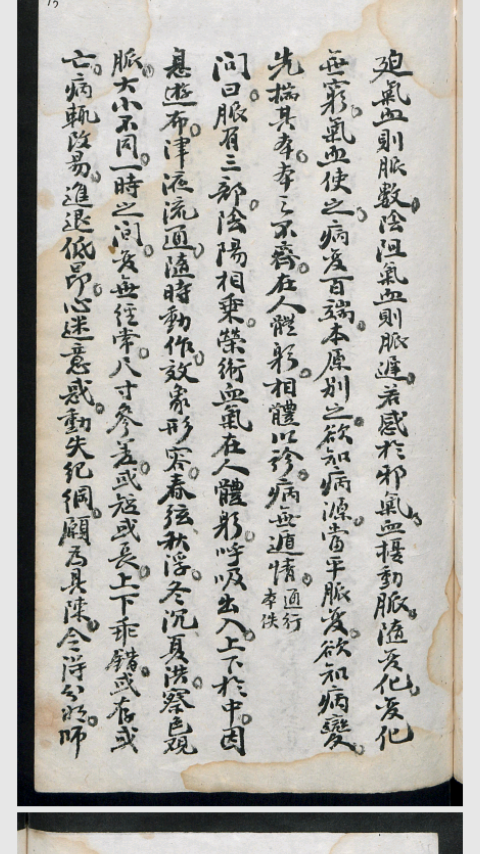 廹氣血則脈數。陰阻氣血則脈遲。若感於邪。氣血擾動脈。隨變化。變化
無窮。氣血使之。病變百端。本原別之。欲知病源。當平脈變。欲知病變。
先揣其本。本之不齊。在人體躬。相體以診。病無遁情。
通行
本佚
問曰。脈有三部。陰陽相乘。榮術血氣。在人體躬。呼吸出入。上下於中。因
息遊布。津液流通。隨時動作。效象形容。春弦秋浮。冬沉夏洪。察色观
脈。大小不同。一時之间。變無经常。尺寸參差。或短或長。上下乖錯。或存或
亡。病輒改易。進退低昂。心迷意惑。動失紀綱。願為具陳。令得分明。師